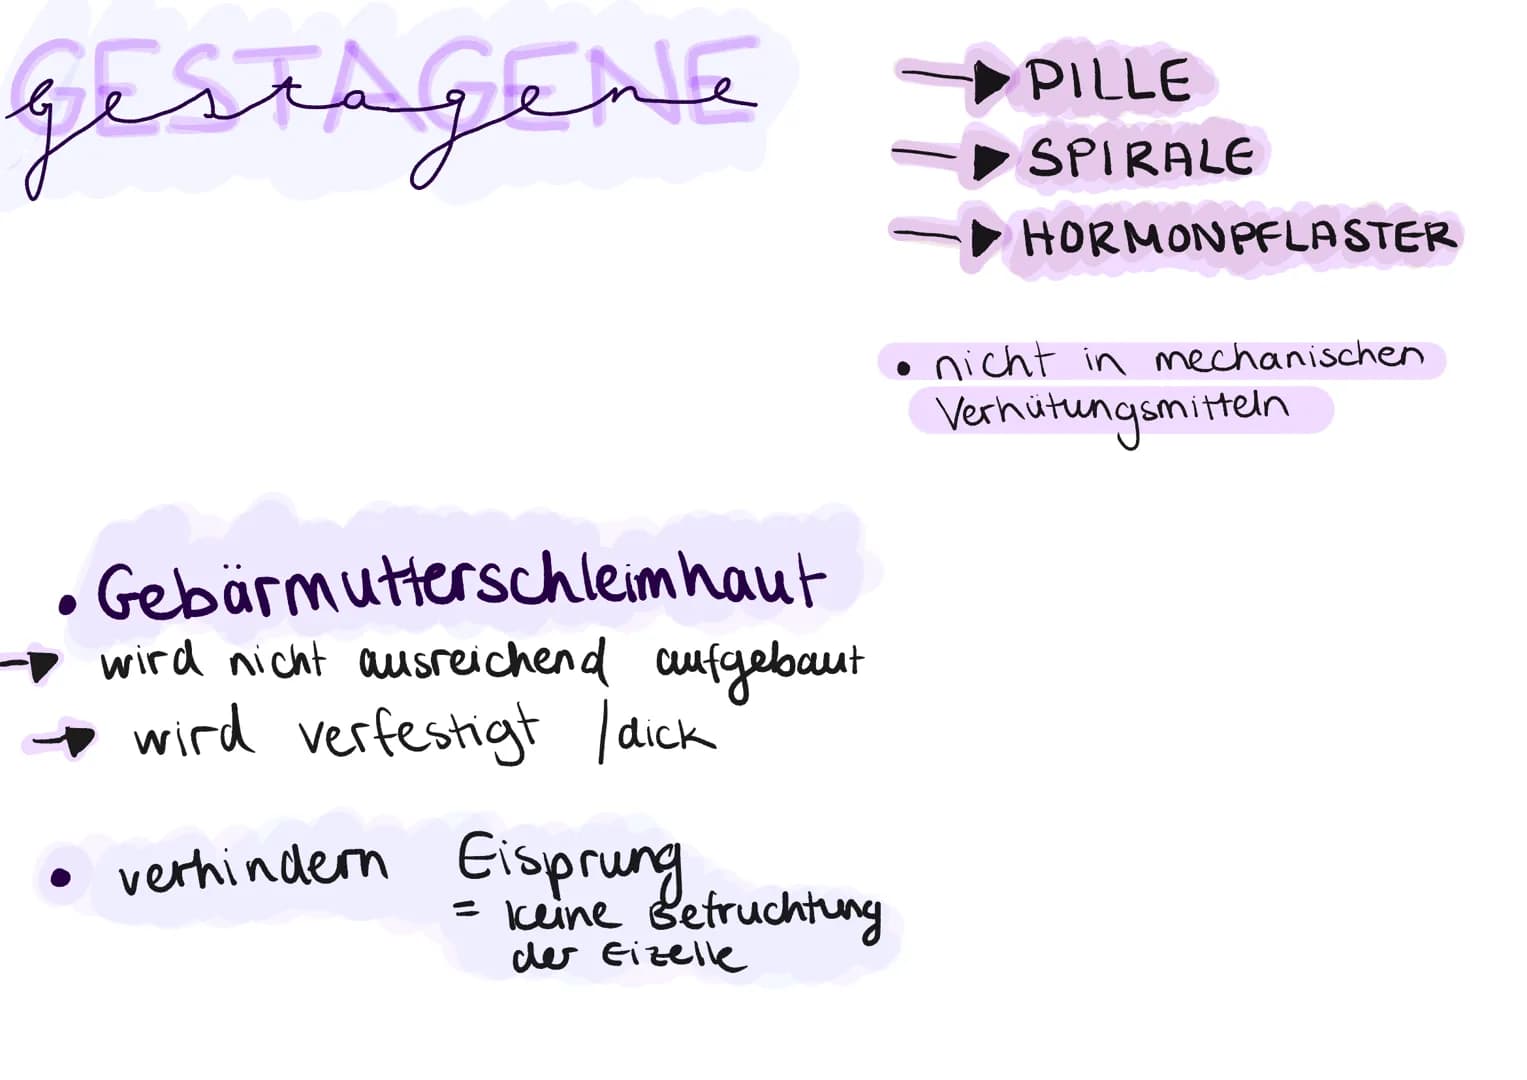 GESTAGENE
gestagene
PILLE
SPIRALE
HORMONPFLASTER
• nicht in mechanischen
Verhütungsmitteln
• Gebärmutterschleimhaut
→ wird nicht ausreichend aufgebaut
→ wird verfestigt / dick
• verhindern Eisprung
= keine Befruchtung
der Eizelle